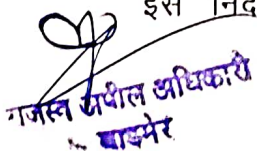 इस निद
राजस्व अपील अधिकारी
बाड़मेर